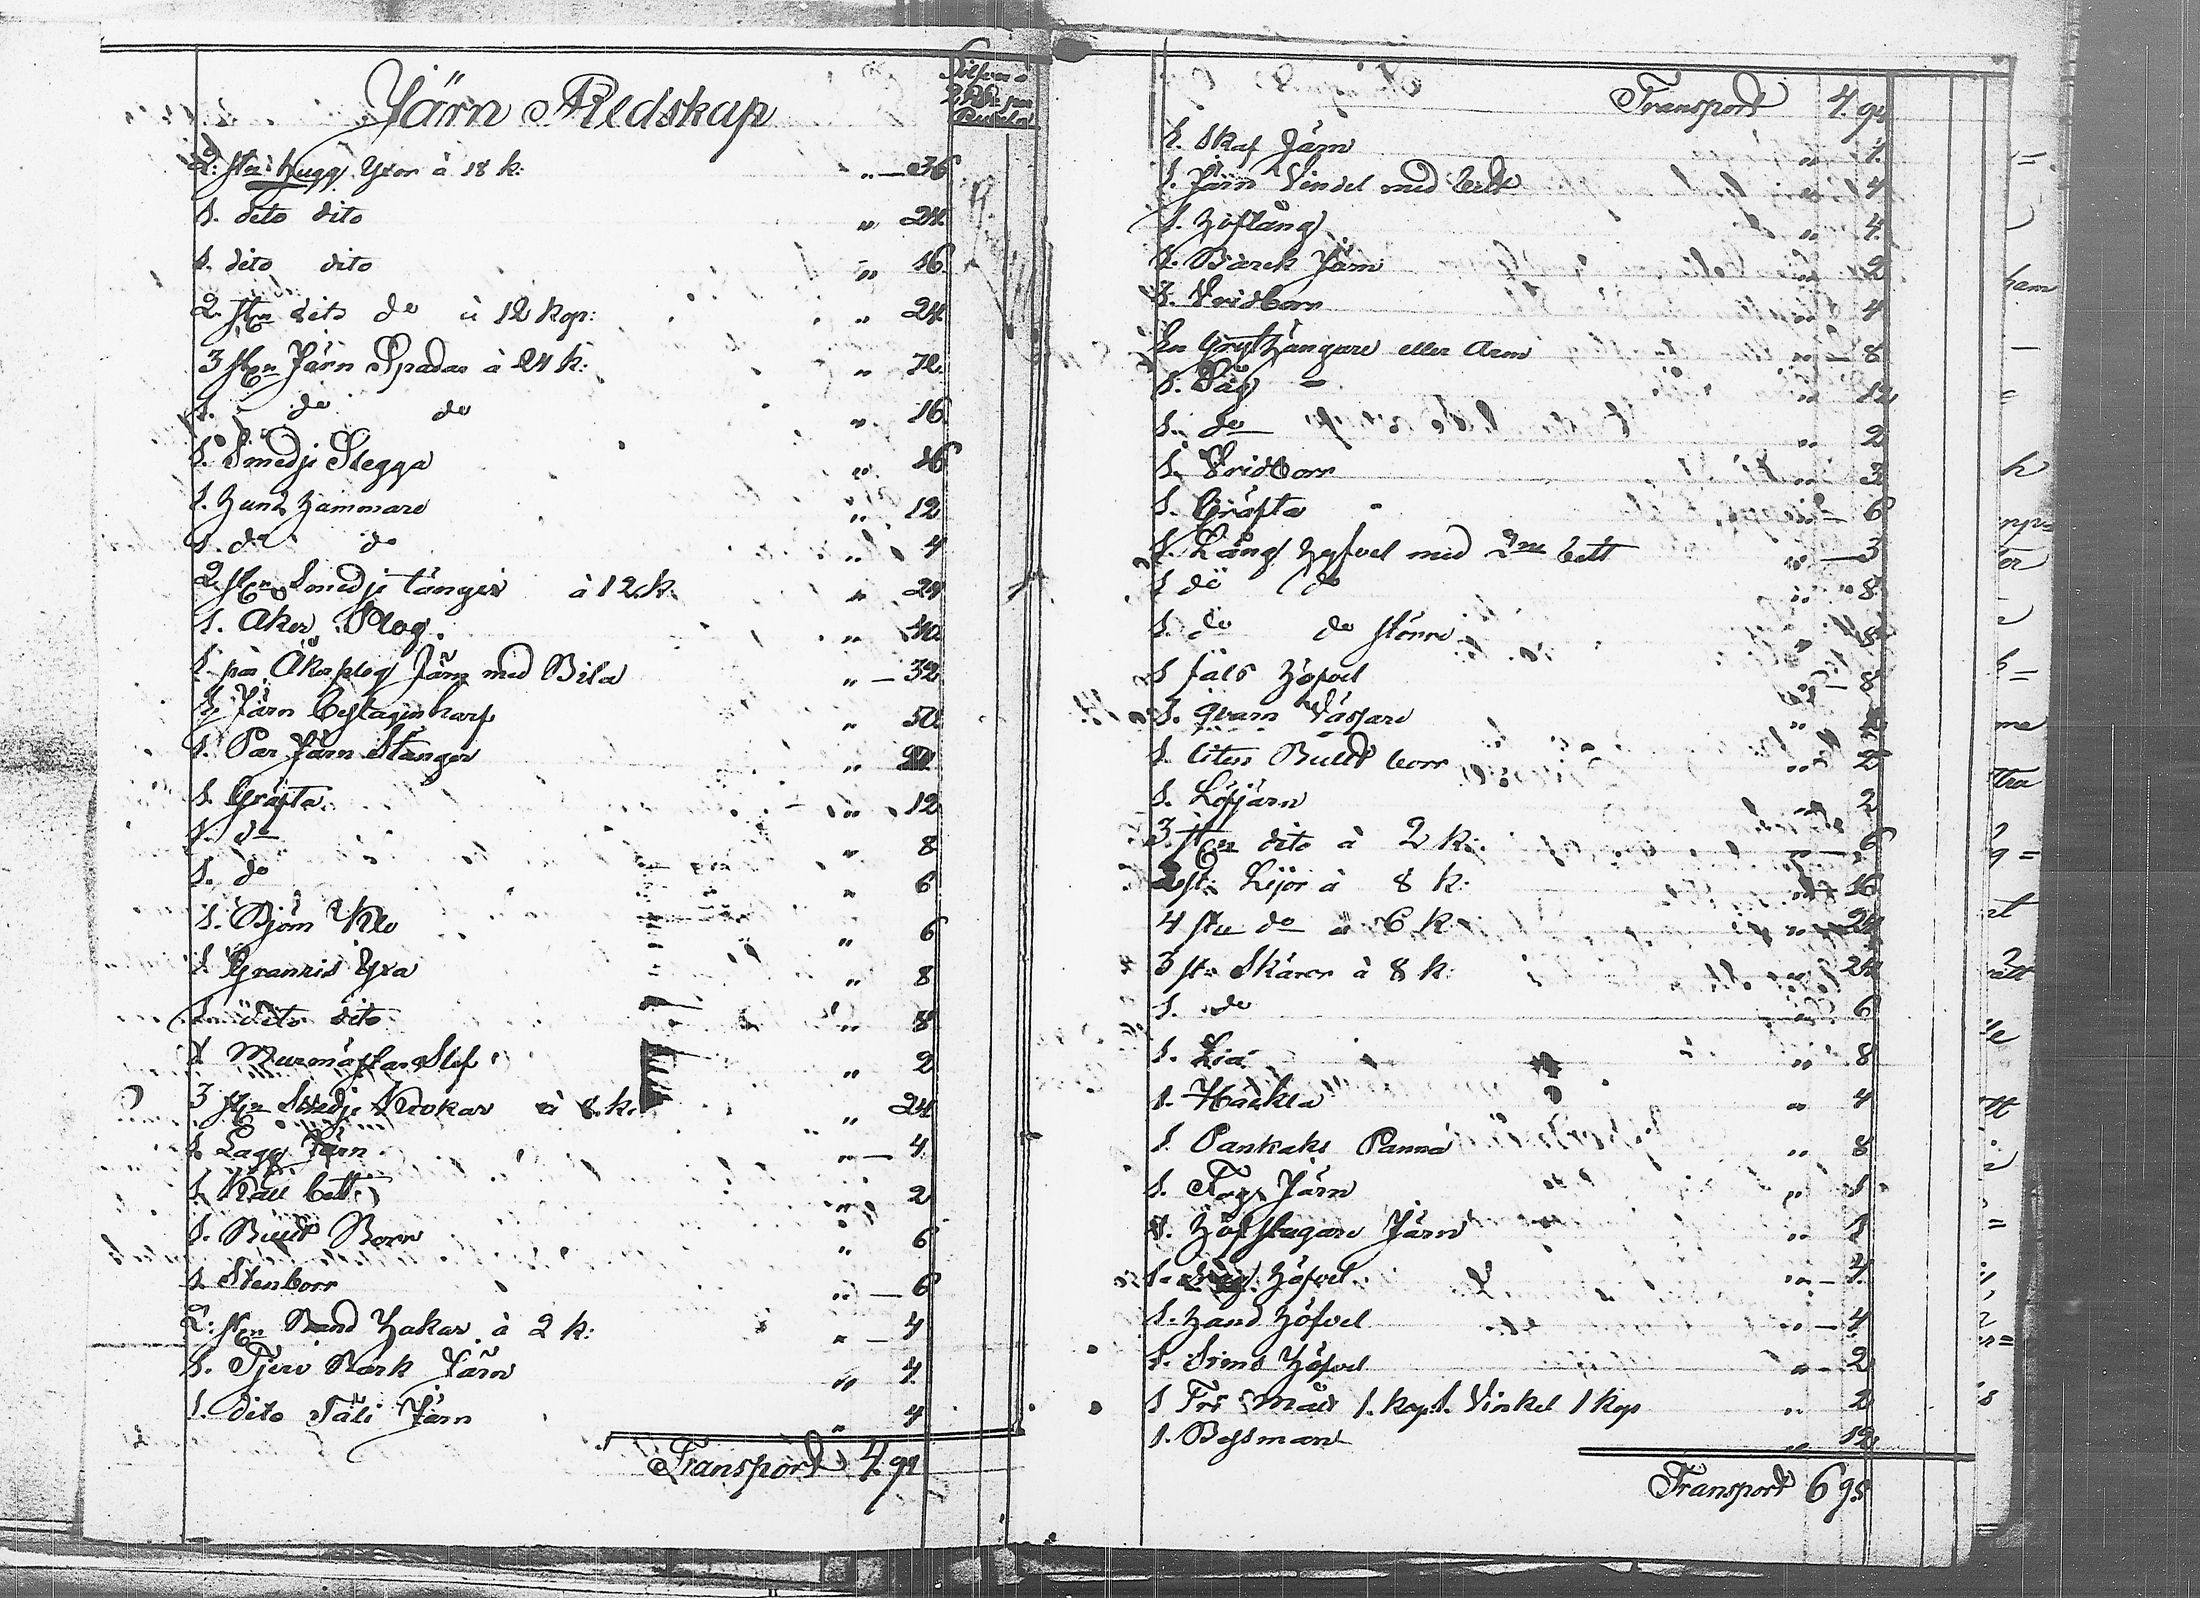 Järn Redskap
2: st:n Hugg Yxor à 18 k: " — 36
1. dito dito " 24
1. dito dito " 16
2. st:n dito do à 12 kop: " 24
3 st:n Järn Spadar à 24 k: " 72
1. do do " 16
1. Smedje Slegga " 16
1. Hand Hammare " 12
1. do do " 4
2. st:n Smedje tänger à 12. k. " 24
1. Åker Plog. " 40
1. par Åkerplog Järn med Bila " — 32
1. Järn beslagen harf " 50
1. Par Järn Stänger "
1. Gräfta. " 12
1. do " 8
1. do " 6
1. Björn Klo " 6
1 Granris Yxa " 8
1. dito dito " 8
1 Murmästar Slef " 2
3 st:n Smedje Krokar à 8. k. " 24
1. Lagg Järn " — 4
1. Käll bett " 2
1. Bult Borr " 6
1. Stenborr " — 6
2: st:n Band Hakar à 2 k: " — 4
1. Tjerv Bark Järn " 4
1. dito Tälj Järn " 4
Transport 4.91
Transport 4.91
1. Skaf Järn " 1.
1. Järn Vindel med bett " 4
1. Hoftång " 4.
1. Barck Järn " 2
1. Vridborr " 4
En Gryt Hängare eller Arm " — 8
1. Såg — " 12
1. do " 2
1. Vridborr " 3
1. Gräfta " — 6
1. Lång Hyfvel med 2ne bett " — 3
1 do do " 8
1. do do större " 8
1 fals Höfvel " — 8
1. qvarn Vässare "
1. liten Bult borr " 2
1. Löfjärn " 2
3. st:n dito à 2 k: " — 6
2 st: Lijor à 8 k: " — 16
4 st:n do à 6 k " — 24
3 st: Skäror à 8 k: " 24
1. do " 6
1. Lia " 8
1. Häckla " 4
1. Pankaks Panna " 8
1. Fogs Järn " 1
1. Hofslagare Järn " 1
1. Höfvel " — 4
1. Hand Höfvel " — 4
1. Sims Höfvel " — 2
1 Trä Mått 1. kop 1. Vinkel 1 kop " 2
1. Bessman " 12
Transport 6 95